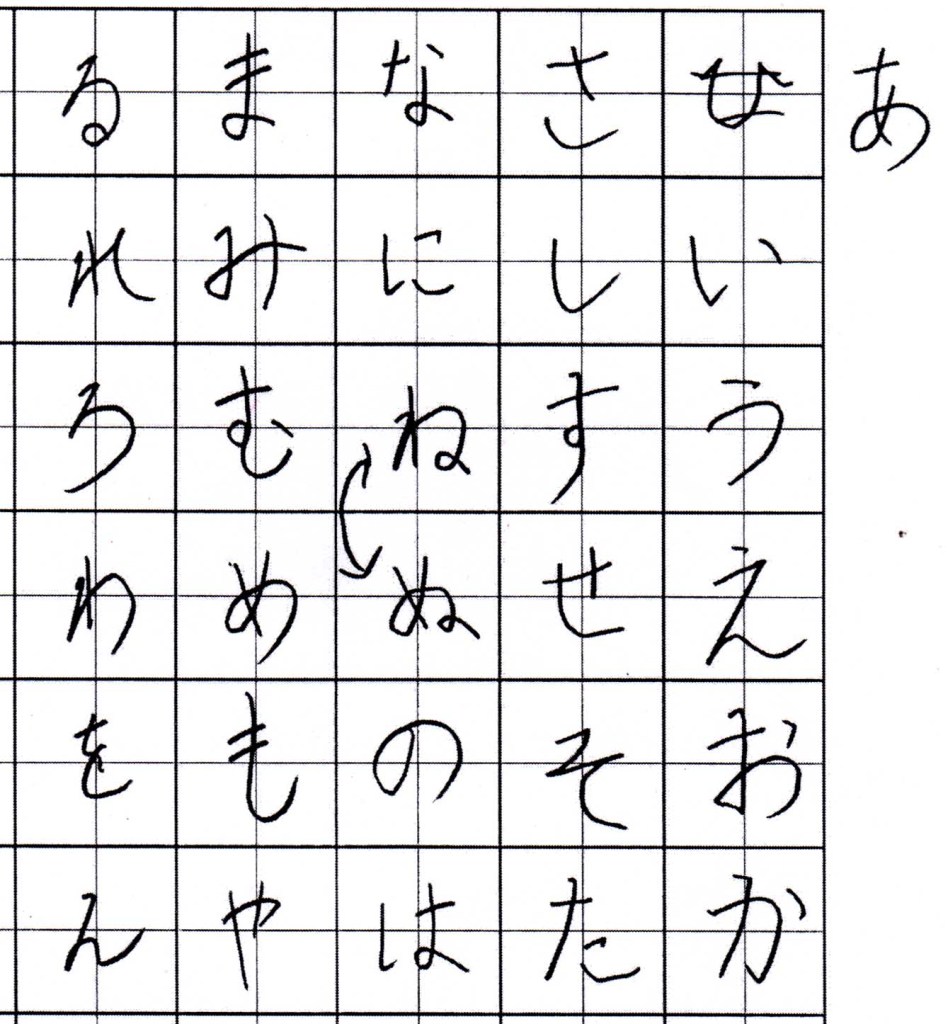 あ
いうえおか
さしすせそた
なにねぬのは
まみむめもや
るれろわをん